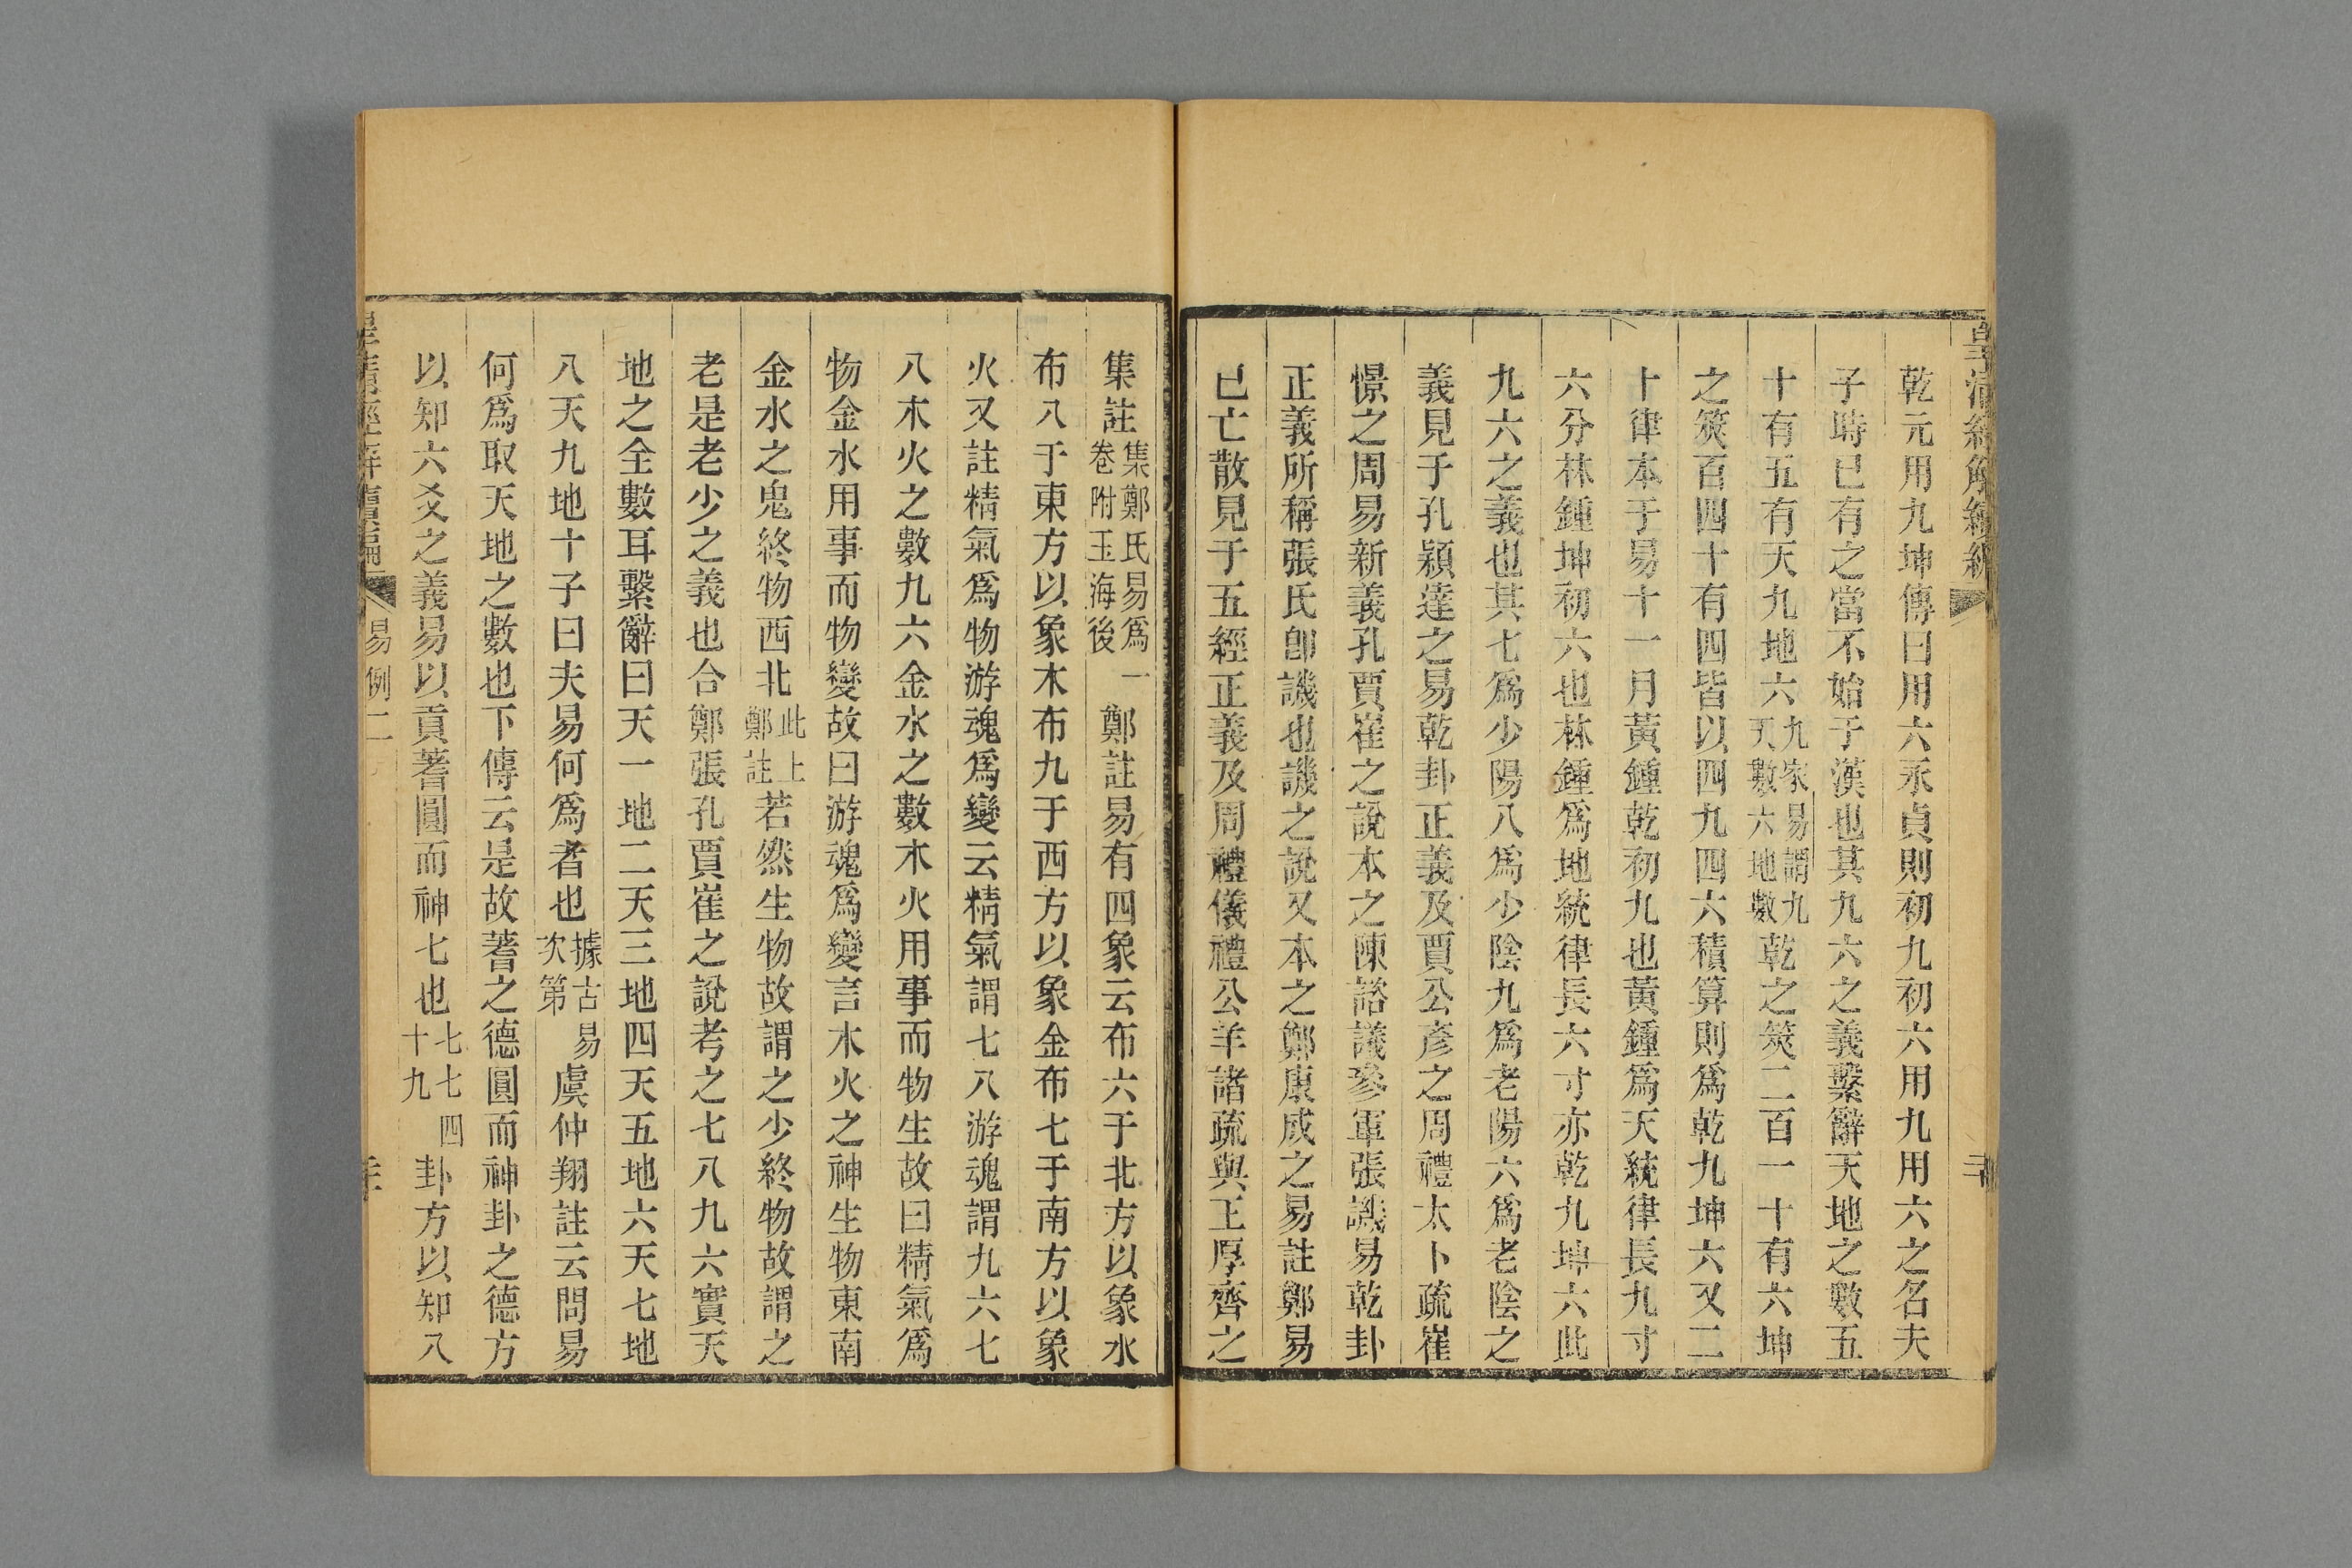 皇清經解續編
乾元用九坤傳曰用六永貞則初九初六用九用六之名夫
子時已有之當不始于漢也其九六之義繫辭天地之數五
十有五有天九地六九家易謂九天數六地數乾之筴二百一十有六坤
之筴百四十有四皆以四九四六積算則爲乾九坤六又二
十律本于易十一月黃鍾乾初九也黃鍾爲天統律長九寸
六分林鍾坤初六也林鍾爲地統律長六寸亦乾九坤六此
九六之義也其七爲少陽八爲少陰九爲老陽六爲老陰之
義見于孔穎達之易乾卦正義及賈公彥之周禮太卜疏崔
憬之周易新義孔賈崔之說本之陳諮議參軍張譏易乾卦
正義所稱張氏卽譏也譏之說又本之鄭康成之易註鄭易
已亡散見于五經正義及周禮儀禮公羊諸疏與王厚齊之
集註集鄭氏易爲一卷附玉海後鄭註易有四象云布六于北方以象水
布八于東方以象木布九于西方以象金布七于南方以象
火又註精氣爲物游魂爲變云精氣謂七八游魂謂九六七
八木火之數九六金水之數木火用事而物生故曰精氣爲
物金水用事而物變故曰游魂爲變言木火之神生物東南
金水之鬼終物西北此上鄭註若然生物故謂之少終物故謂之
老是老少之義也合鄭張孔賈崔之說考之七八九六實天
地之全數耳繫辭曰天一地二天三地四天五地六天七地
八天九地十子曰夫易何爲者也據古易次第虞仲翔註云問易
何爲取天地之數也下傳云是故蓍之德圓而神卦之德方
以知六爻之義易以貢蓍圓而神七也七七四十九卦方以知八
皇清經解續編
易例二